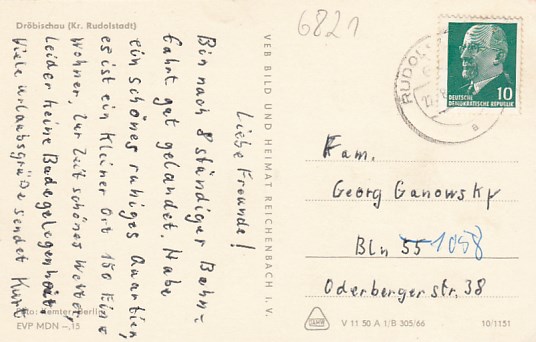 Dröbischau (Kr. Rudolstadt)
6821
Liebe Freunde!
Bin nach 8 stündiger Bahn-
fahrt gut gelandet. Habe
ein schönes ruhiges Quartier,
es ist ein kleiner Ort 150 Ein-
wohner, zur Zeit schönes Wetter,
Leider keine Badegelegenheit.
Viele Urlaubsgrüße sendet Kurt
Foto: Demter, Berlin
EVP MDN -,15
VEB BILD UND HEIMAT REICHENBACH I. V.
RUDOLS
10
DEUTSCHE
DEMOKRATISCHE REPUBLIK
a
Fam.
Georg Ganowsky
Bln 55 1058
Oderberger str. 38
V 11 50 A 1/B 305/66
10/1151